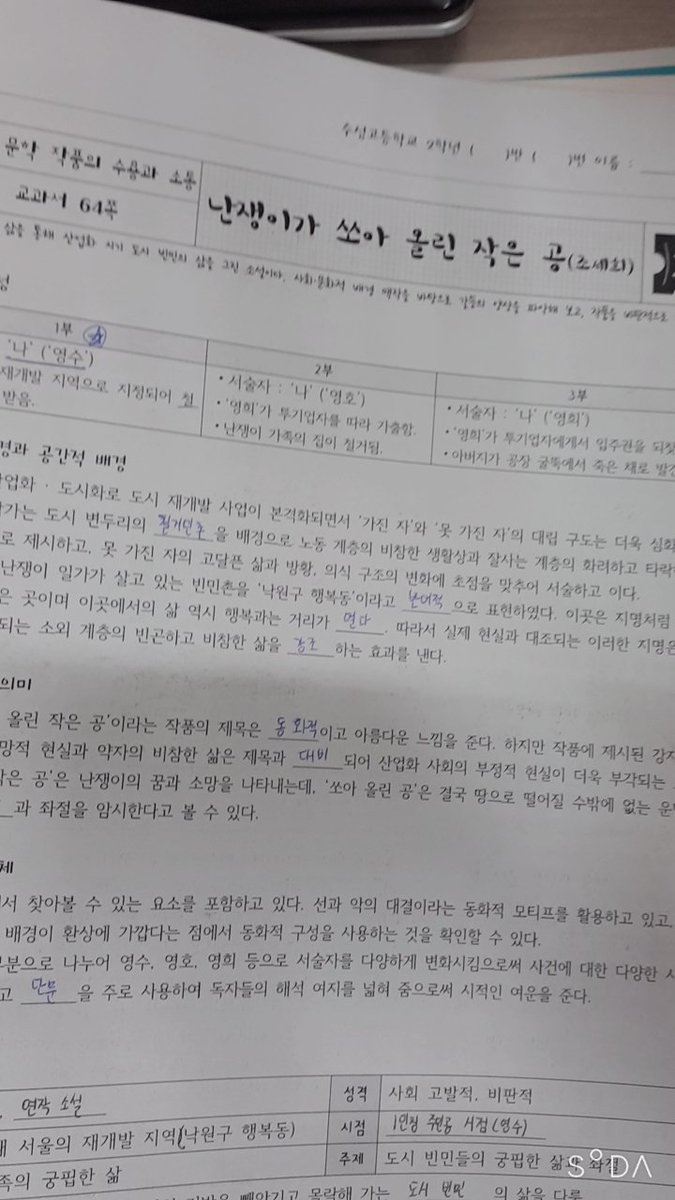 수성고등학교 2학년 ( )반 ( )번 이름 :
문학 작품의 수용과 소통
교과서 64쪽
난쟁이가 쏘아 올린 작은 공(조세희)
삶을 통해 산업화 시기 도시 빈민의 삶을 그린 소설이다. 사회·문화적 배경 맥락을 바탕으로 갈등의 양상을 파악해 보고, 작품을 비판적으로
성
1부
'나' ('영수')
재개발 지역으로 지정되어 철
받음.
2부
• 서술자 : '나' ('영호')
• '영희'가 투기업자를 따라 가출함.
• 난쟁이 가족의 집이 철거됨.
3부
• 서술자 : '나' ('영희')
• '영희'가 투기업자에게서 입주권을 되찾
• 아버지가 공장 굴뚝에서 죽은 채로 발견
경과 공간적 배경
산업화 · 도시화로 도시 재개발 사업이 본격화되면서 '가진 자'와 '못 가진 자'의 대립 구도는 더욱 심화
작가는 도시 변두리의 을 배경으로 노동 계층의 비참한 생활상과 잘사는 계층의 화려하고 타락
로 제시하고, 못 가진 자의 고달픈 삶과 방황, 의식 구조의 변화에 초점을 맞추어 서술하고 이다.
난쟁이 일가가 살고 있는 빈민촌을 '낙원구 행복동'이라고 으로 표현하였다. 이곳은 지명처럼
은 곳이며 이곳에서의 삶 역시 행복과는 거리가 멀다. 따라서 실제 현실과 대조되는 이러한 지명은
되는 소외 계층의 빈곤하고 비참한 삶을 강조 하는 효과를 낸다.
의미
올린 작은 공'이라는 작품의 제목은 동화적이고 아름다운 느낌을 준다. 하지만 작품에 제시된 강자
망적 현실과 약자의 비참한 삶은 제목과 대비 되어 산업화 사회의 부정적 현실이 더욱 부각되는
작은 공'은 난쟁이의 꿈과 소망을 나타내는데, '쏘아 올린 공'은 결국 땅으로 떨어질 수밖에 없는 운
과 좌절을 암시한다고 볼 수 있다.
체
서 찾아볼 수 있는 요소를 포함하고 있다. 선과 악의 대결이라는 동화적 모티프를 활용하고 있고,
배경이 환상에 가깝다는 점에서 동화적 구성을 사용하는 것을 확인할 수 있다.
부분으로 나누어 영수, 영호, 영희 등으로 서술자를 다양하게 변화시킴으로써 사건에 대한 다양한 시
고 단문 을 주로 사용하여 독자들의 해석 여지를 넓혀 줌으로써 시적인 여운을 준다.
연작 소설
성격
사회 고발적, 비판적
대 서울의 재개발 지역(낙원구 행복동)
시점
1인칭 주인공 시점(영수)
족의 궁핍한 삶
주제
도시 빈민들의 궁핍한 삶과 좌절
기반을 빼앗기고 몰락해 가는 도시 빈민 의 삶을 다룸
SODA